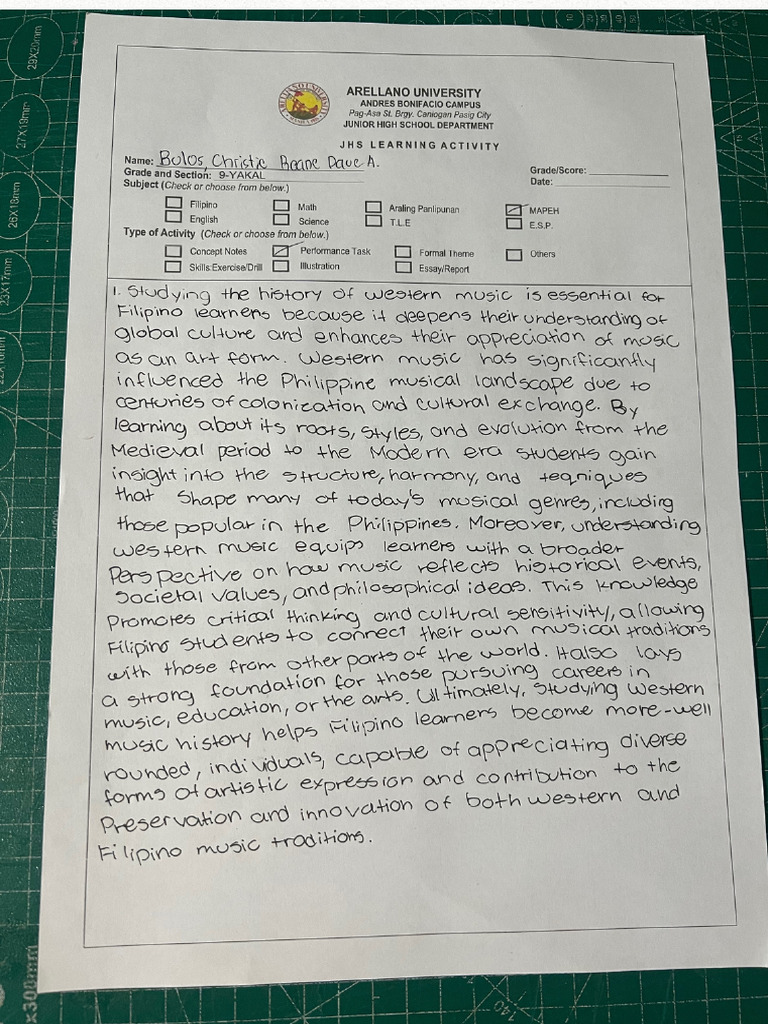 ARELLANO UNIVERSITY
ANDRES BONIFACIO CAMPUS
Pag-Asa St. Brgy. Caniogan Pasig City
JUNIOR HIGH SCHOOL DEPARTMENT
JHS LEARNING ACTIVITY
Name: Bulos, Christic Dave A.
Grade and Section: 9-YAKAL
Grade/Score:
Date:
Subject (Check or choose from below.)
Filipino Math Araling Panlipunan MAPEH
English Science T.L.E E.S.P.
Type of Activity (Check or choose from below.)
Concept Notes Performance Task Formal Theme Others
Skills:Exercise/Drill Illustration Essay/Report
1. Studying the history of western music is essential for
Filipino learners because it deepens their understanding of
global culture and enhances their appreciation of music
as an art form. Western music has significantly
influenced the Philippine musical landscape due to
centuries of colonization and cultural exchange. By
learning about its roots, styles, and evolution from the
Medieval period to the Modern era students gain
insight into the structure, harmony, and teqniques
that shape many of today's musical genres, including
those popular in the Philippines. Moreover, understanding
western music equips learners with a broader
Perspective on how music reflects historical events,
societal values, and philosophical ideas. This knowledge
Promotes critical thinking and cultural sensitivity, allowing
Filipino students to connect their own musical traditions
with those from other parts of the world. It also lays
a strong foundation for those pursuing careers in
music, education, or the arts. Ultimately, studying western
music history helps Filipino learners become more-well
rounded, individuals, capable of appreciating diverse
forms of artistic expression and contribution to the
Preservation and innovation of both western and
Filipino music traditions.
29X20mm
27X19mm
26X18mm
23X17mm